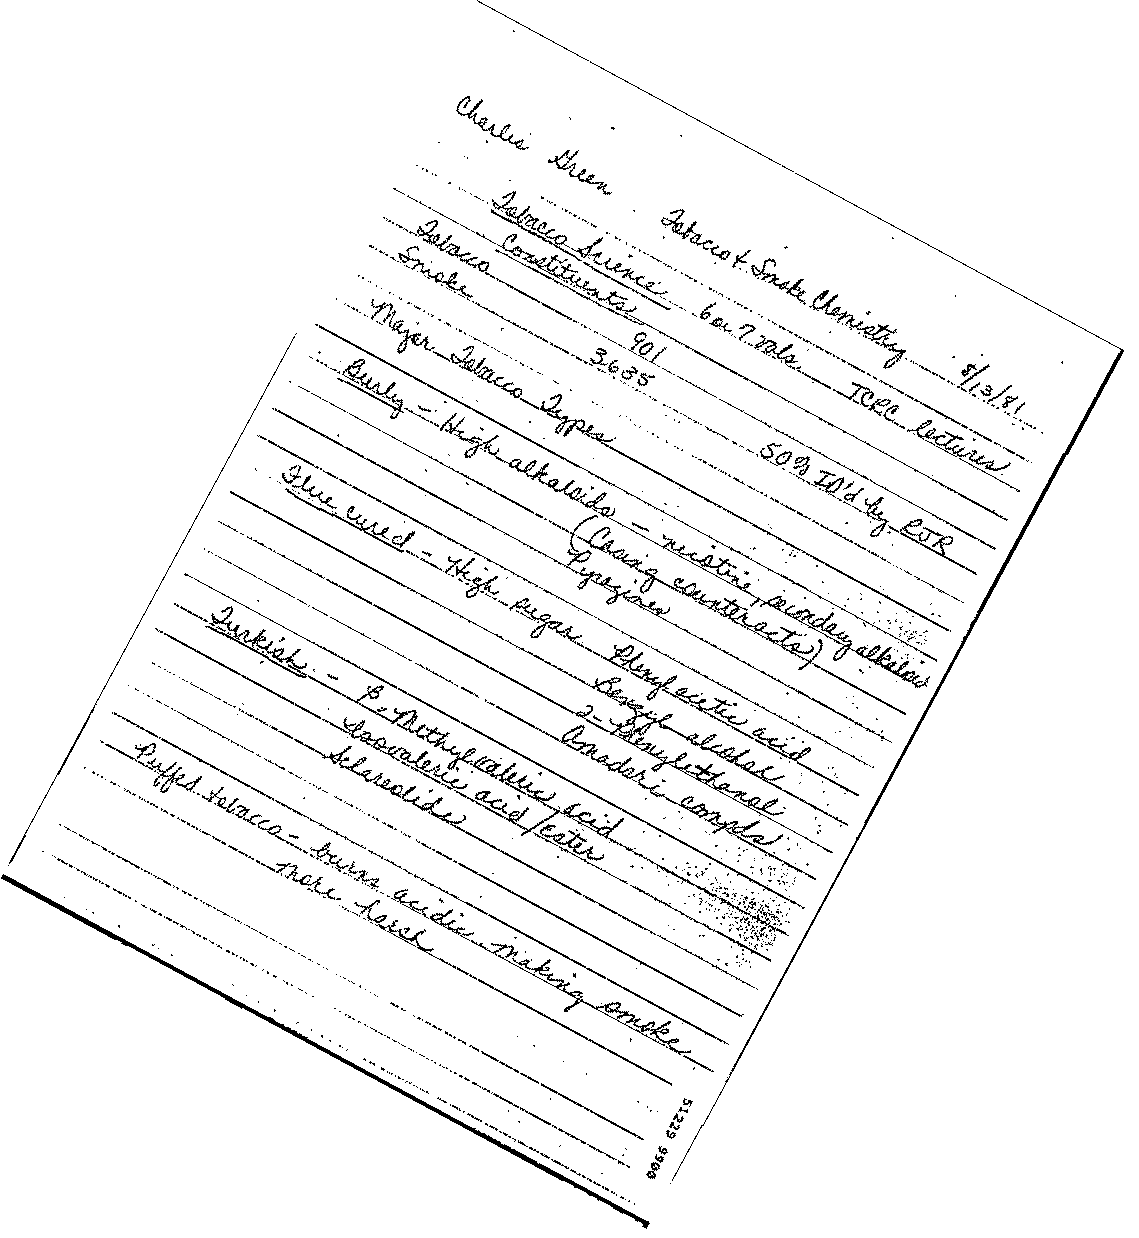 Charlie Green Tobacco & Smoke Chemistry 8/13/81
Tobacco Science 6 or 7 vols. TCRC lectures
Constituents
Tobacco 901
Smoke 3635 50% ID'd by RJR
Major Tobacco Types
Burly - High alkaloids - nicotine, secondary alkaloids
(Casing counteracts)
Pyrazines
Flue cured - High sugar Phenylacetic acid
Benzyl alcohol
2-Phenylethanal
Amadori compds
Turkish - β-Methylvaleric acid
Isovaleric acid/ester
Sclareolide
Puffed tobacco - burns acidic making smoke
more harsh
51229 9900